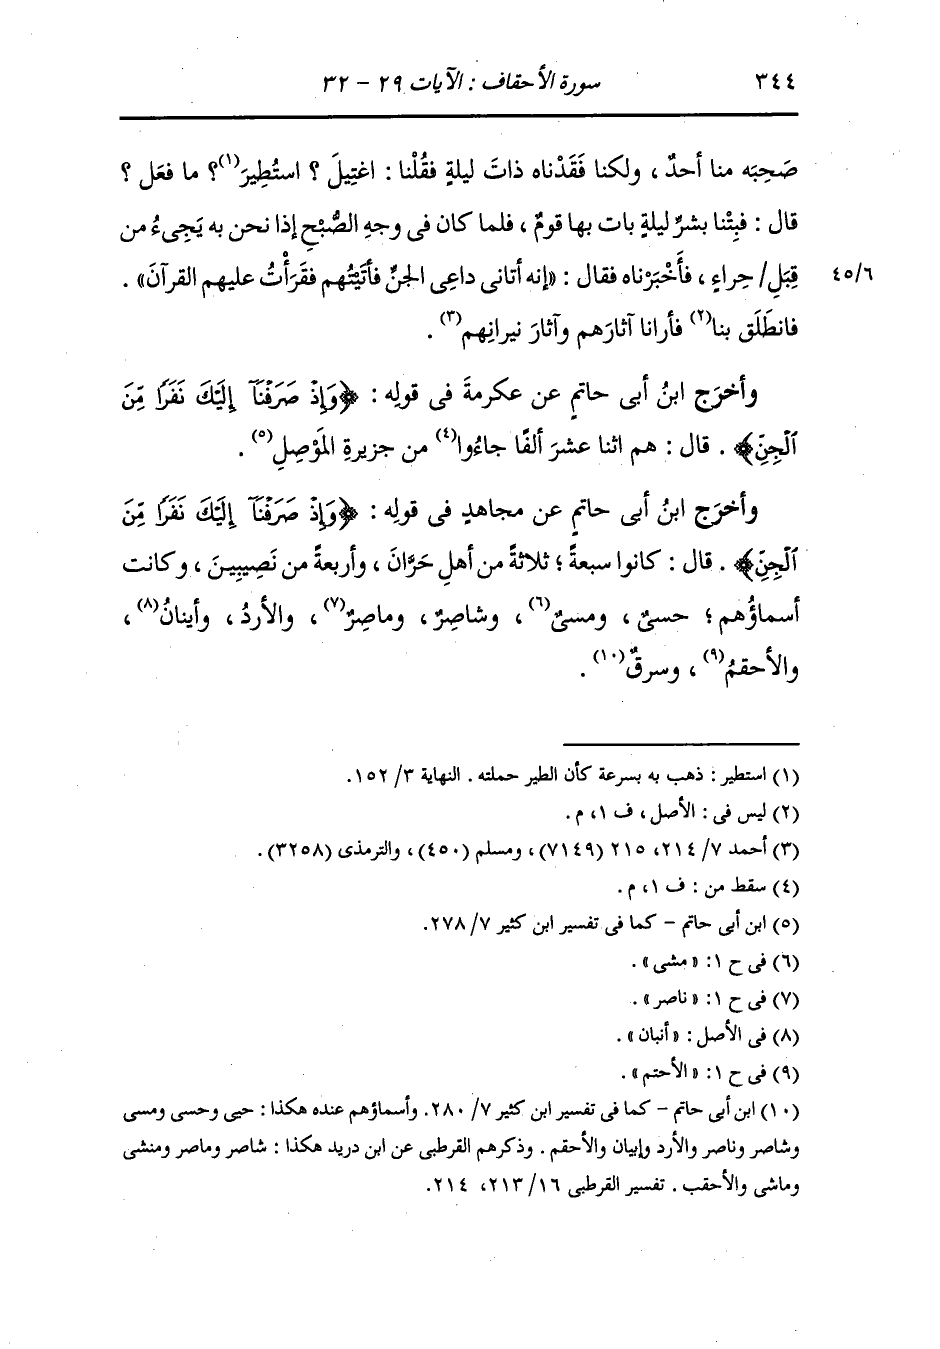 ٣٤٤ سورة الأحقاف : الآيات ٢٩ - ٣٢
صَحِبَه منا أحدٌ ، ولكنا فَقَدْناه ذاتَ ليلةٍ فقُلْنا : اغتِيلَ ؟ استُطِيرَ(١)؟ ما فعَل ؟
قال : فبِتْنا بشرِّ ليلةٍ بات بها قومٌ ، فلما كان فى وجهِ الصُّبْحِ إذا نحن به يَجِىءُ من
٤٥/٦ قِبَلِ/ حِراءٍ ، فأَخْبَرْناه فقال : «إنه أتانى داعِى الجنِّ فأتَيْتُهم فقَرَأْتُ عليهم القرآنَ» .
فانطَلَق بنا(٢) فأرانا آثارَهم وآثارَ نيرانِهم(٣) .
وأخرَج ابنُ أبى حاتمٍ عن عكرمةَ فى قولِه : ﴿وَإِذْ صَرَفْنَآ إِلَيْكَ نَفَرًا مِّنَ
ٱلْجِنِّ﴾ . قال : هم اثنا عشرَ ألفًا جاءُوا(٤) من جزيرةِ المَوْصِلِ(٥) .
وأخرَج ابنُ أبى حاتمٍ عن مجاهدٍ فى قولِه : ﴿وَإِذْ صَرَفْنَآ إِلَيْكَ نَفَرًا مِّنَ
ٱلْجِنِّ﴾ . قال : كانوا سبعةً ؛ ثلاثةً من أهلِ حَرَّانَ ، وأربعةً من نَصِيبِينَ ، وكانت
أسماؤُهم ؛ حسىٌ ، ومسىٌ(٦) ، وشاصِرٌ ، وماصِرٌ(٧) ، والأردُ ، وأينانُ(٨) ،
والأحقمُ(٩) ، وسرقٌ(١٠) .
(١) استطير : ذهب به بسرعة كأن الطير حملته . النهاية ٣/ ١٥٢.
(٢) ليس فى : الأصل ، ف ١، م .
(٣) أحمد ٧/ ٢١٤، ٢١٥ (٧١٤٩) ، ومسلم (٤٥٠) ، والترمذى (٣٢٥٨) .
(٤) سقط من : ف ١، م .
(٥) ابن أبى حاتم - كما فى تفسير ابن كثير ٧/ ٢٧٨.
(٦) فى ح ١: «مشى» .
(٧) فى ح ١: «ناصر» .
(٨) فى الأصل : «أنبان» .
(٩) فى ح ١: «الأحتم» .
(١٠) ابن أبى حاتم - كما فى تفسير ابن كثير ٧/ ٢٨٠. وأسماؤهم عنده هكذا : حيى وحسى ومسى
وشاصر وناصر والأرد وإبيان والأحقم . وذكرهم القرطبى عن ابن دريد هكذا : شاصر وماصر ومنشى
وماشى والأحقب . تفسير القرطبى ١٦/ ٢١٣، ٢١٤.